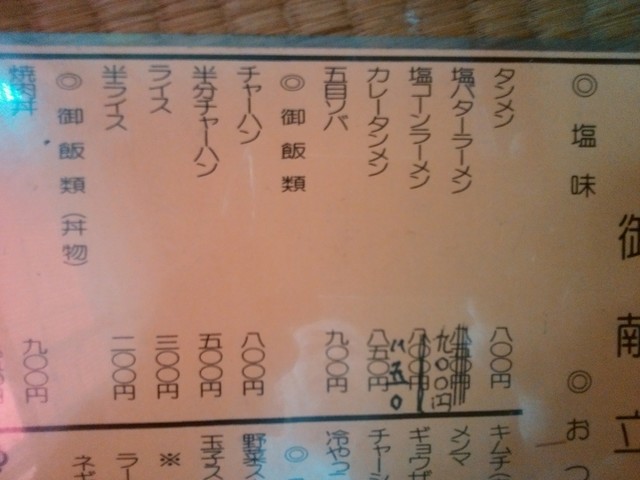 御南立
◎塩味
タンメン 八〇〇円
塩バターラーメン 九〇〇円
塩コーンラーメン 八五〇
カレータンメン 八五〇円
五目ソバ 九〇〇円
◎御飯類
チャーハン 八〇〇円
半分チャーハン 五〇〇円
ライス 三〇〇円
半ライス 二〇〇円
◎御飯類(丼物)
焼肉丼 九〇〇円
◎おつ
キムチ
メンマ
ギョウザ
チャーシ
冷やっ
◎
野菜ス
玉子ス
※
ラー
ネギ